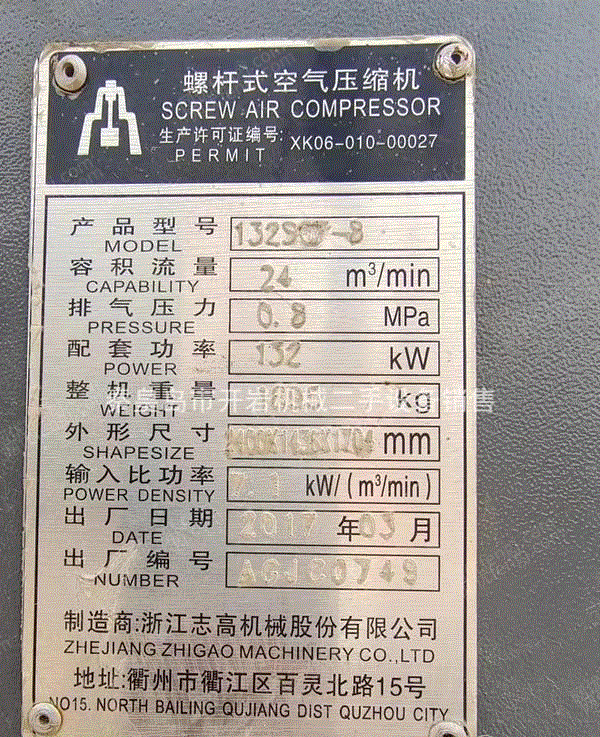 螺杆式空气压缩机
SCREW AIR COMPRESSOR
生产许可证编号: XK06-010-00027
PERMIT
产品型号
MODEL
容积流量 24 m³/min
CAPABILITY
排气压力 0.8 MPa
PRESSURE
配套功率 132 kW
POWER
整机重量 kg
WEIGHT
外形尺寸 mm
SHAPESIZE
输入比功率 kW/(m³/min)
POWER DENSITY
出厂日期 2017 年 03 月
DATE
出厂编号
NUMBER
制造商:浙江志高机械股份有限公司
ZHEJIANG ZHIGAO MACHINERY CO.,LTD
地址:衢州市衢江区百灵北路15号
NO15. NORTH BAILING QUJIANG DIST QUZHOU CITY